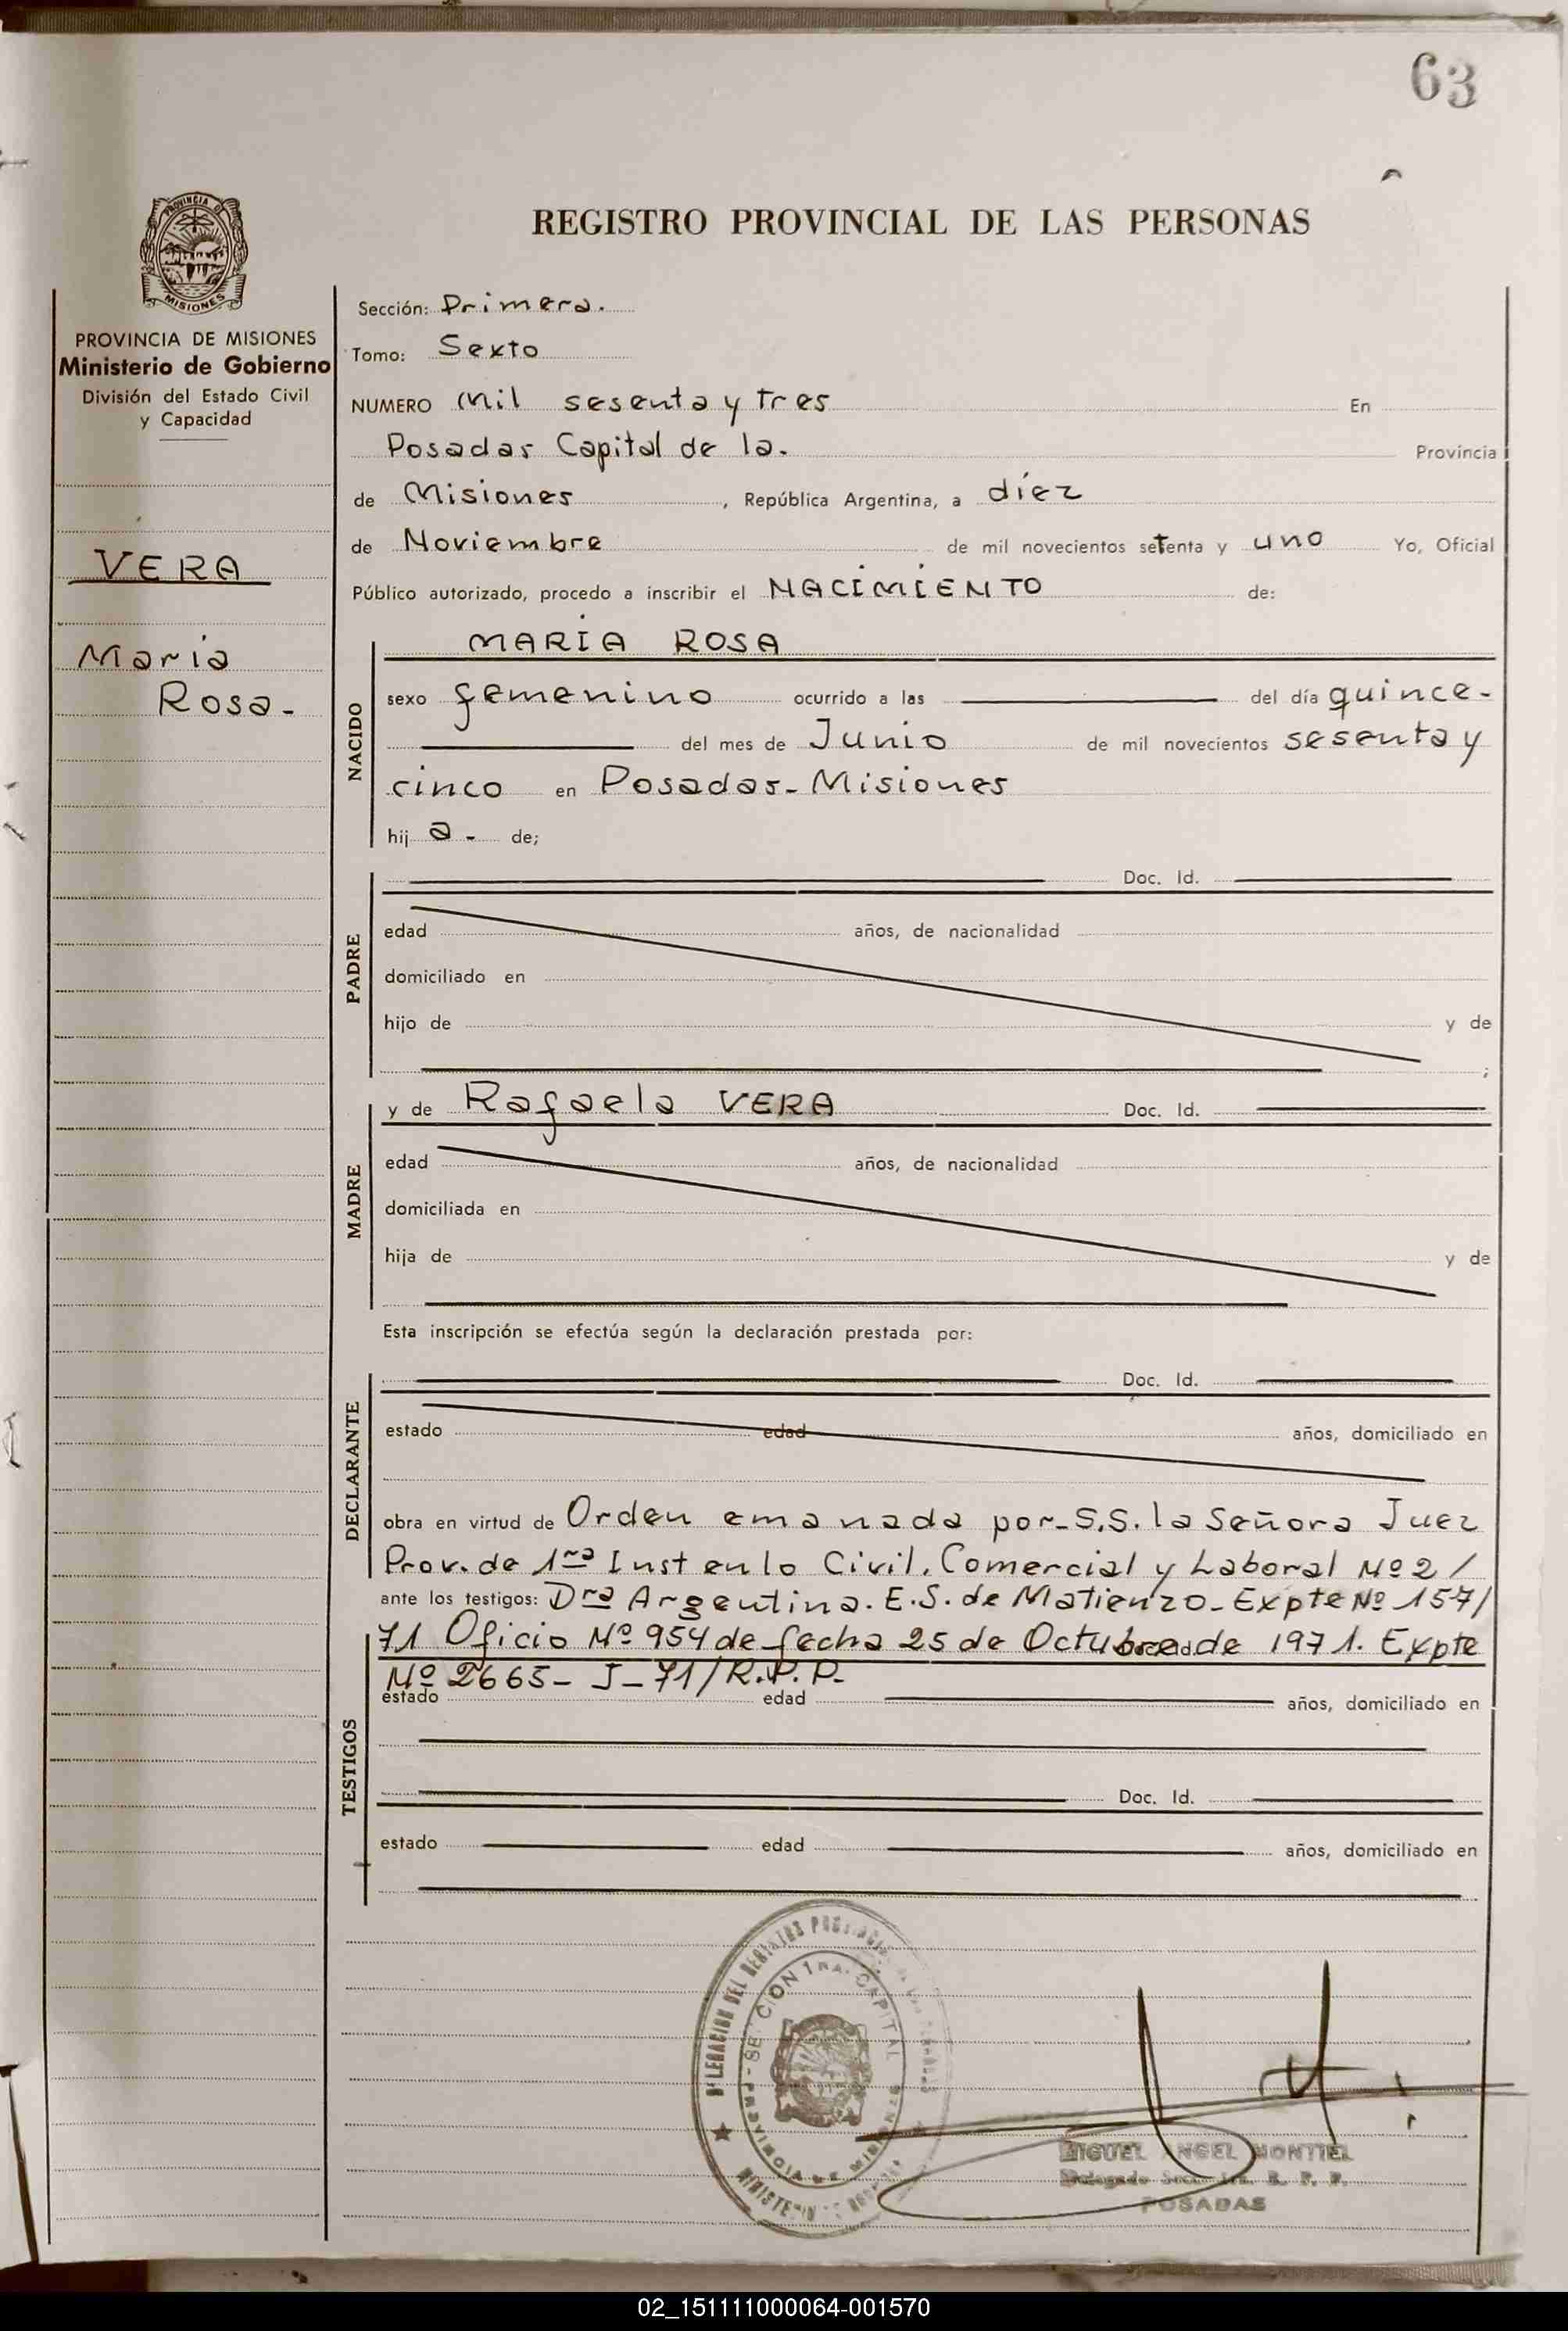 63
PROVINCIA DE
MISIONES
REGISTRO PROVINCIAL DE LAS PERSONAS
PROVINCIA DE MISIONES
Ministerio de Gobierno
División del Estado Civil
y Capacidad
VERA
Maria
Rosa-
Sección: Primera.
Tomo: Sexto
NUMERO Mil sesenta y tres En
Posadas Capital de la. Provincia
de Misiones, República Argentina, a diez
de Noviembre de mil novecientos setenta y uno Yo, Oficial
Público autorizado, procedo a inscribir el NACIMIENTO de:
NACIDO
MARIA ROSA
sexo femenino ocurrido a las del día quince-
del mes de Junio de mil novecientos sesenta y
cinco en Posadas- Misiones
hij a- de;
PADRE
Doc. Id.
edad años, de nacionalidad
domiciliado en
hijo de y de
;
MADRE
y de Rafaela VERA Doc. Id.
edad años, de nacionalidad
domiciliada en
hija de y de
Esta inscripción se efectúa según la declaración prestada por:
DECLARANTE
Doc. Id.
estado edad años, domiciliado en
obra en virtud de Orden emanada por- S.S. la Señora Juez
Prov. de 1ra Inst en lo Civil, Comercial y Laboral Nº 2/
ante los testigos: Dra Argentina. E.S. de Matienzo- Expte Nº 157/
71 Oficio Nº 954 de fecha 25 de Octubre de 1971. Expte
Nº 2665- J-71/R.P.P.
TESTIGOS
estado edad años, domiciliado en
Doc. Id.
estado edad años, domiciliado en
SECCION 1RA. CAPITAL
PROVINCIA DE MISIONES
MIGUEL ANGEL MONTIEL
Delegado Secc. 1ra. R. P. P.
POSADAS
02_151111000064-001570